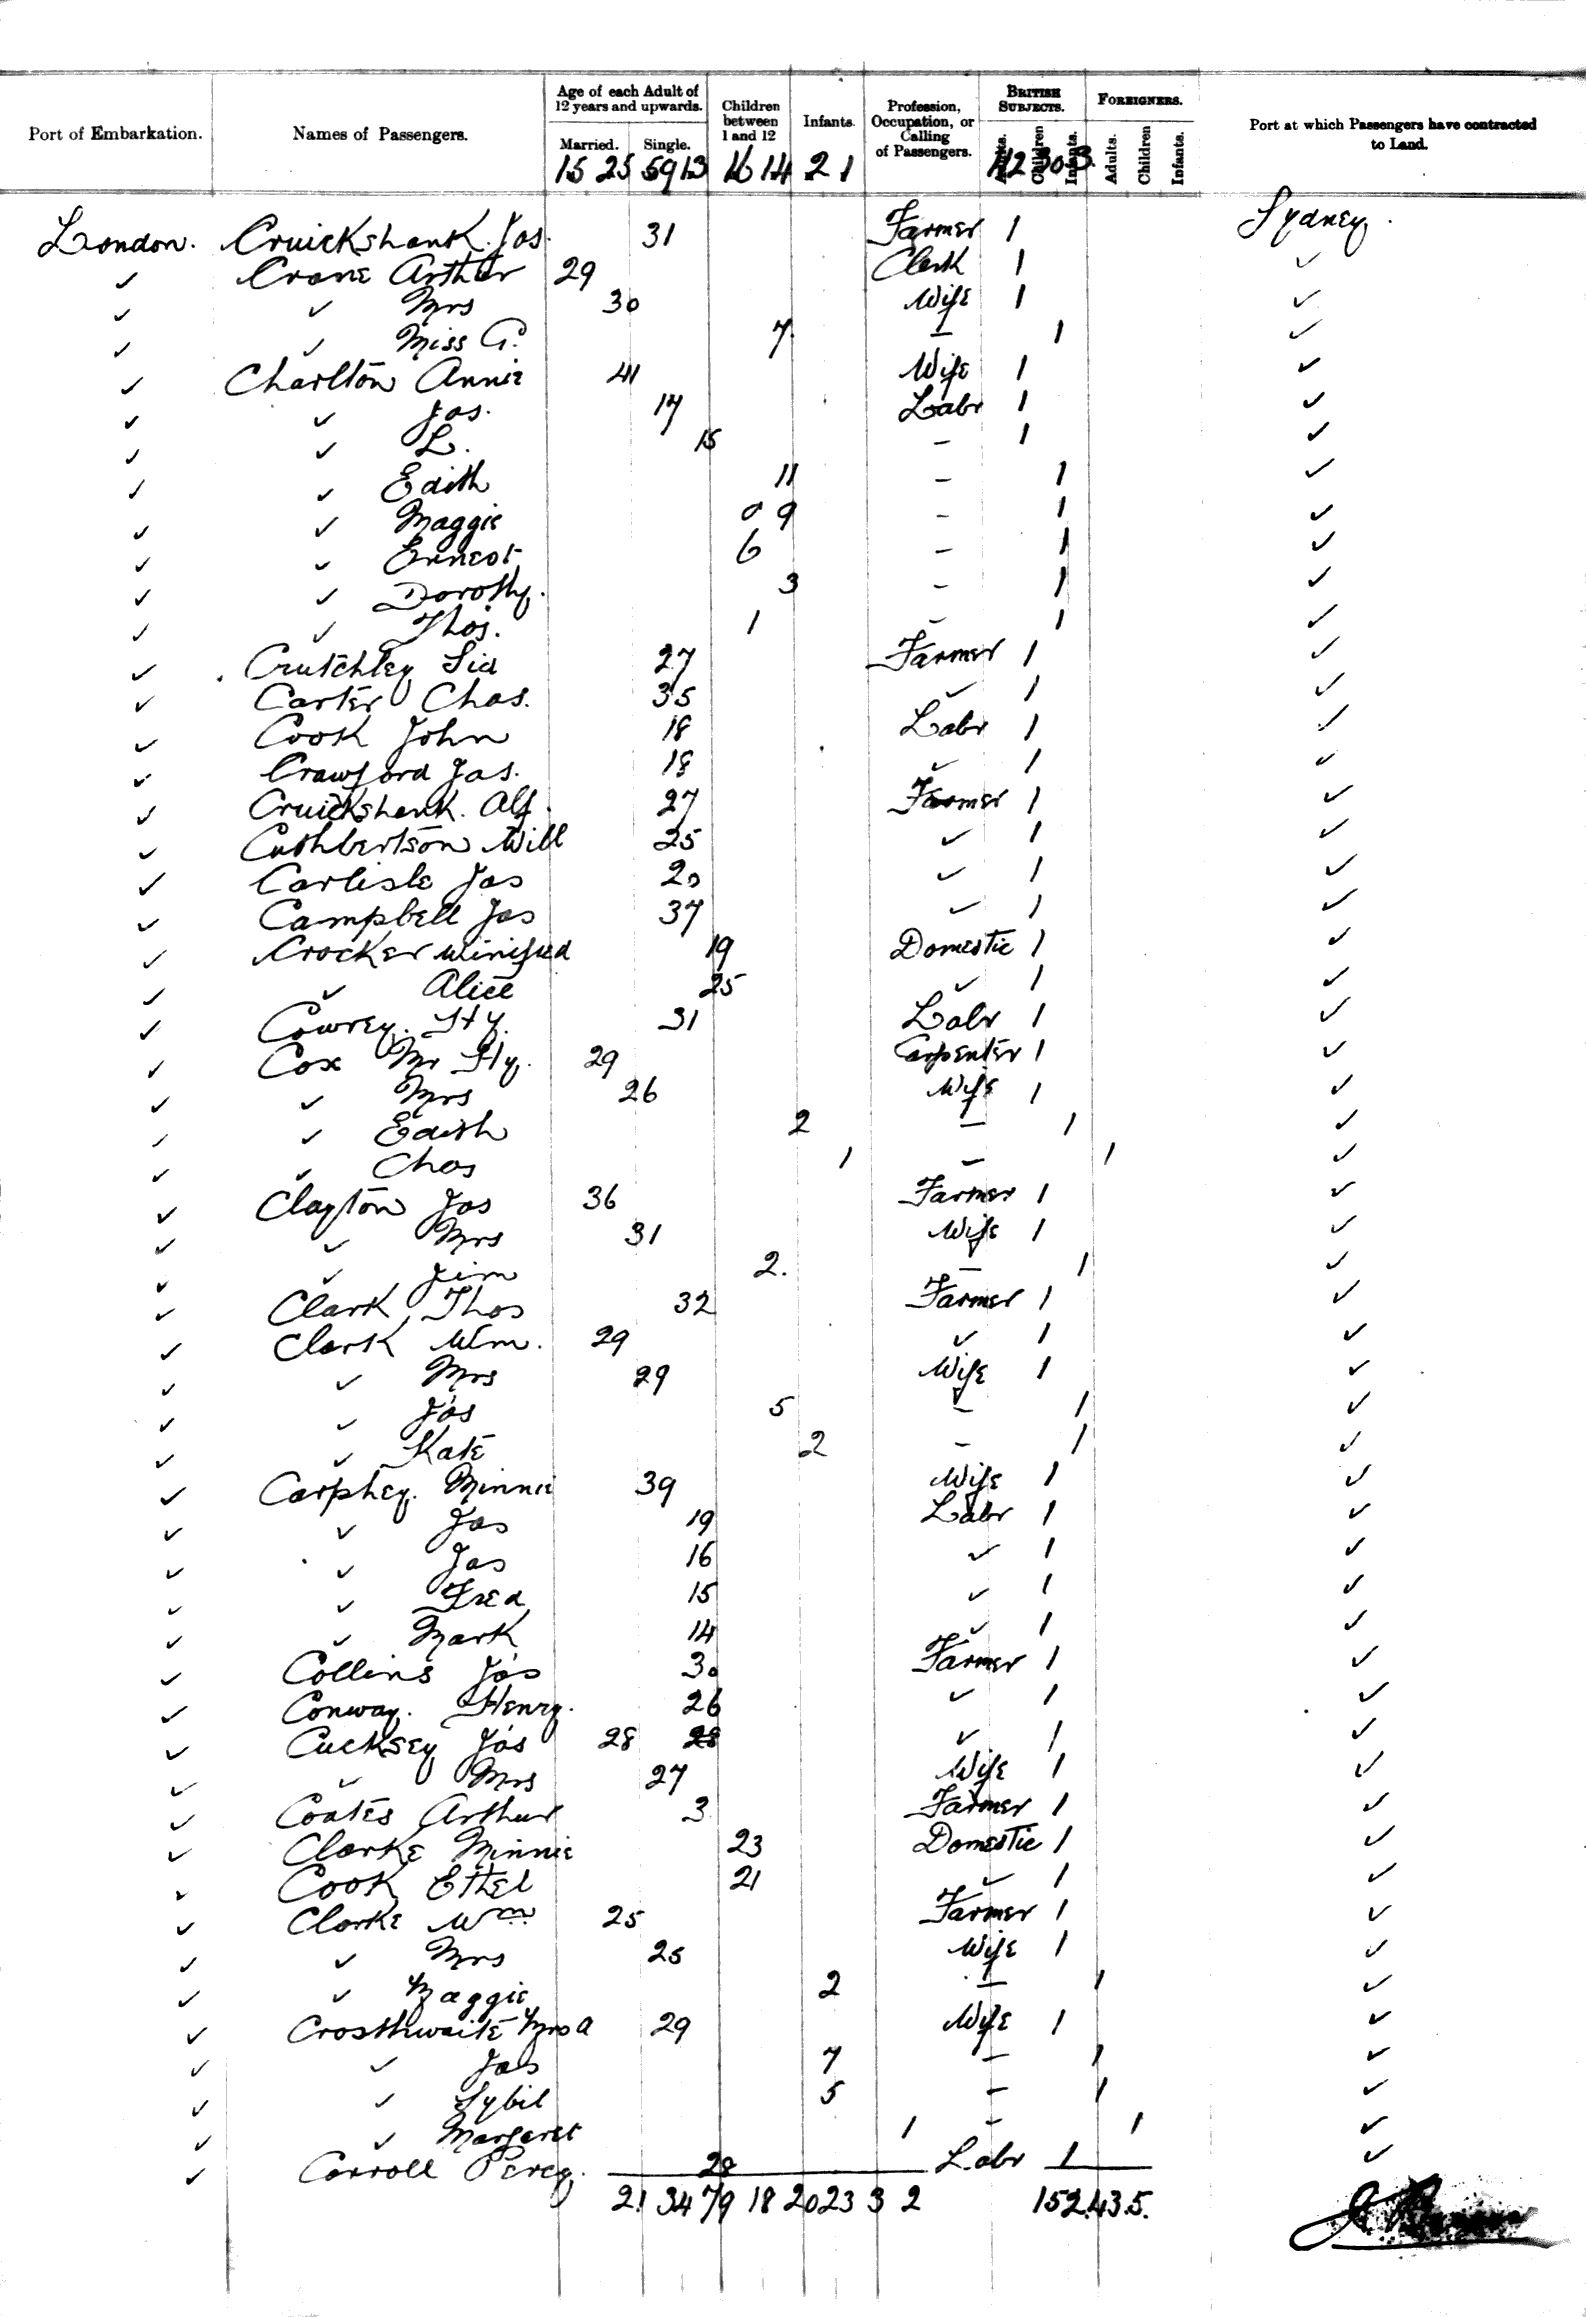 Port of Embarkation. Names of Passengers. Age of each Adult of 12 years and upwards. Married. Single. Children between 1 and 12 Infants. Profession, Occupation, or Calling of Passengers. BRITISH SUBJECTS. Adults. Children Infants. FOREIGNERS. Adults. Children Infants. Port at which Passengers have contracted to Land.
15 25 59 13 16 14 2 1 112 30 3.
London. Cruickshank. Jas. 31 Farmer 1 Sydney.
✓ Crane Arthur 29 Clerk 1 ✓
✓ ✓ Mrs 30 Wife 1 ✓
✓ ✓ Miss G. 7 – 1 ✓
✓ Charlton Annie 41 Wife 1 ✓
✓ ✓ Jas. 17 Labr 1 ✓
✓ ✓ L. 15 – 1 ✓
✓ ✓ Edith 11 – 1 ✓
✓ ✓ Maggie 9 – 1 ✓
✓ ✓ Ernest 6 – 1 ✓
✓ ✓ Dorothy. 3 – 1 ✓
✓ ✓ Thos. 1 – 1 ✓
✓ Crutchley Sid 27 Farmer 1 ✓
✓ Carter Chas. 35 ✓ 1 ✓
✓ Cook John 18 Labr 1 ✓
✓ Crawford Jas. 18 ✓ 1 ✓
✓ Cruickshank. Alf. 27 Farmer 1 ✓
✓ Cuthbertson Will 25 ✓ 1 ✓
✓ Carlisle Jas 20 ✓ 1 ✓
✓ Campbell Jas 37 ✓ 1 ✓
✓ Crocker Winifred 19 Domestic 1 ✓
✓ ✓ Alice 25 ✓ 1 ✓
✓ Cowrey. Hy. 31 Labr 1 ✓
✓ Cox Mr Hy. 29 Carpenter 1 ✓
✓ ✓ Mrs 26 Wife 1 ✓
✓ ✓ Edith 2 – 1 ✓
✓ ✓ Chas 1 – 1 ✓
✓ Clayton Jas 36 Farmer 1 ✓
✓ ✓ Mrs 31 Wife 1 ✓
✓ ✓ Jim 2. – 1 ✓
✓ Clark Thos 32 Farmer 1 ✓
✓ Clark Wm. 29 ✓ 1 ✓
✓ ✓ Mrs 29 Wife 1 ✓
✓ ✓ Jas 5 – 1 ✓
✓ ✓ Kate 2 – 1 ✓
✓ Carphey. Minnie 39 Wife 1 ✓
✓ ✓ Jas 19 Labr 1 ✓
✓ ✓ Jas 16 ✓ 1 ✓
✓ ✓ Fred 15 ✓ 1 ✓
✓ ✓ Mark 14 ✓ 1 ✓
✓ Collins Jas 30 Farmer 1 ✓
✓ Conway. Henry. 26 ✓ 1 ✓
✓ Cucksey Jas 28 28 ✓ 1 ✓
✓ ✓ Mrs 27 Wife 1 ✓
✓ Coates Arthur 3 Farmer 1 ✓
✓ Clarke Minnie 23 Domestic 1 ✓
✓ Cook Ethel 21 ✓ 1 ✓
✓ Clarke Wm 25 Farmer 1 ✓
✓ ✓ Mrs 25 Wife 1 ✓
✓ ✓ Maggie 2 – 1 ✓
✓ Crosthwaite Mrs A 29 Wife 1 ✓
✓ ✓ Jas 7 – 1 ✓
✓ ✓ Sybil 5 – 1 ✓
✓ ✓ Margaret 1 – 1 ✓
✓ Carroll Percy. 28 Labr 1 ✓
21 34 79 18 20 23 3 2 152.43.5.